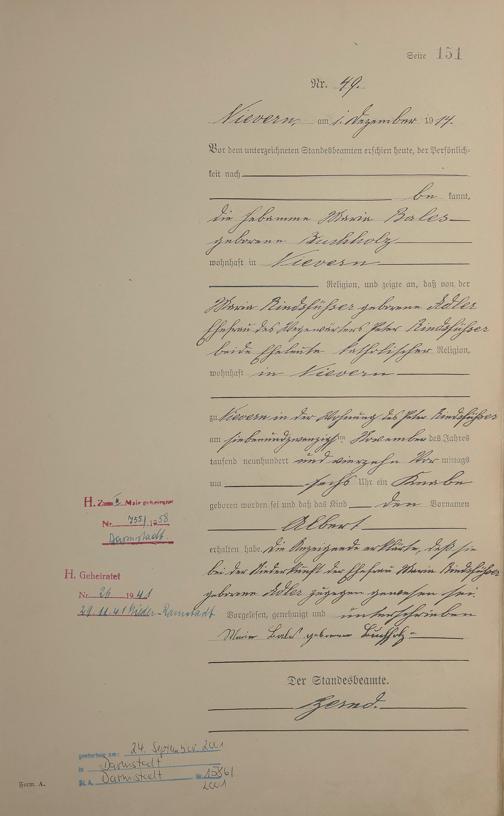 Seite 151
Nr. 49.
Nievern, am 1. Dezember 1914.
Vor dem unterzeichneten Standesbeamten erschien heute, der Persönlich-
keit nach
be kannt,
die Hebamme Maria Bales
geborene Buchholz
wohnhaft in Nievern
Religion, und zeigte an, daß von der
Maria Rindsfüßer geborene Adler
Ehefrau des Peter Rindsfüßer
beide Eheleute katholischer Religion,
wohnhaft in Nievern
zu Nievern in der Wohnung des Peter Rindsfüßer
am siebenundzwanzigsten November des Jahres
tausend neunhundert und vierzehn Vor mittags
um sechs Uhr ein Knabe
geboren worden sei und daß das Kind den Vornamen
Albert
erhalten habe. Die Anzeigende erklärte, daß sie
bei der Niederkunft der Ehefrau Maria Rindsfüßer
geborenen Adler zugegen gewesen sei.
Vorgelesen, genehmigt und unterschrieben
Maria Bales geborene Buchholz
Der Standesbeamte.
H. Zum 3. Male geheiratet
Nr. 755/1958
Darmstadt
H. Geheiratet
Nr. 26 1941
29.11.41 Nieder-Ramstadt
gestorben am: 24. September 2001
in Darmstadt
St. A. Darmstadt Nr.
2001
Form. A.